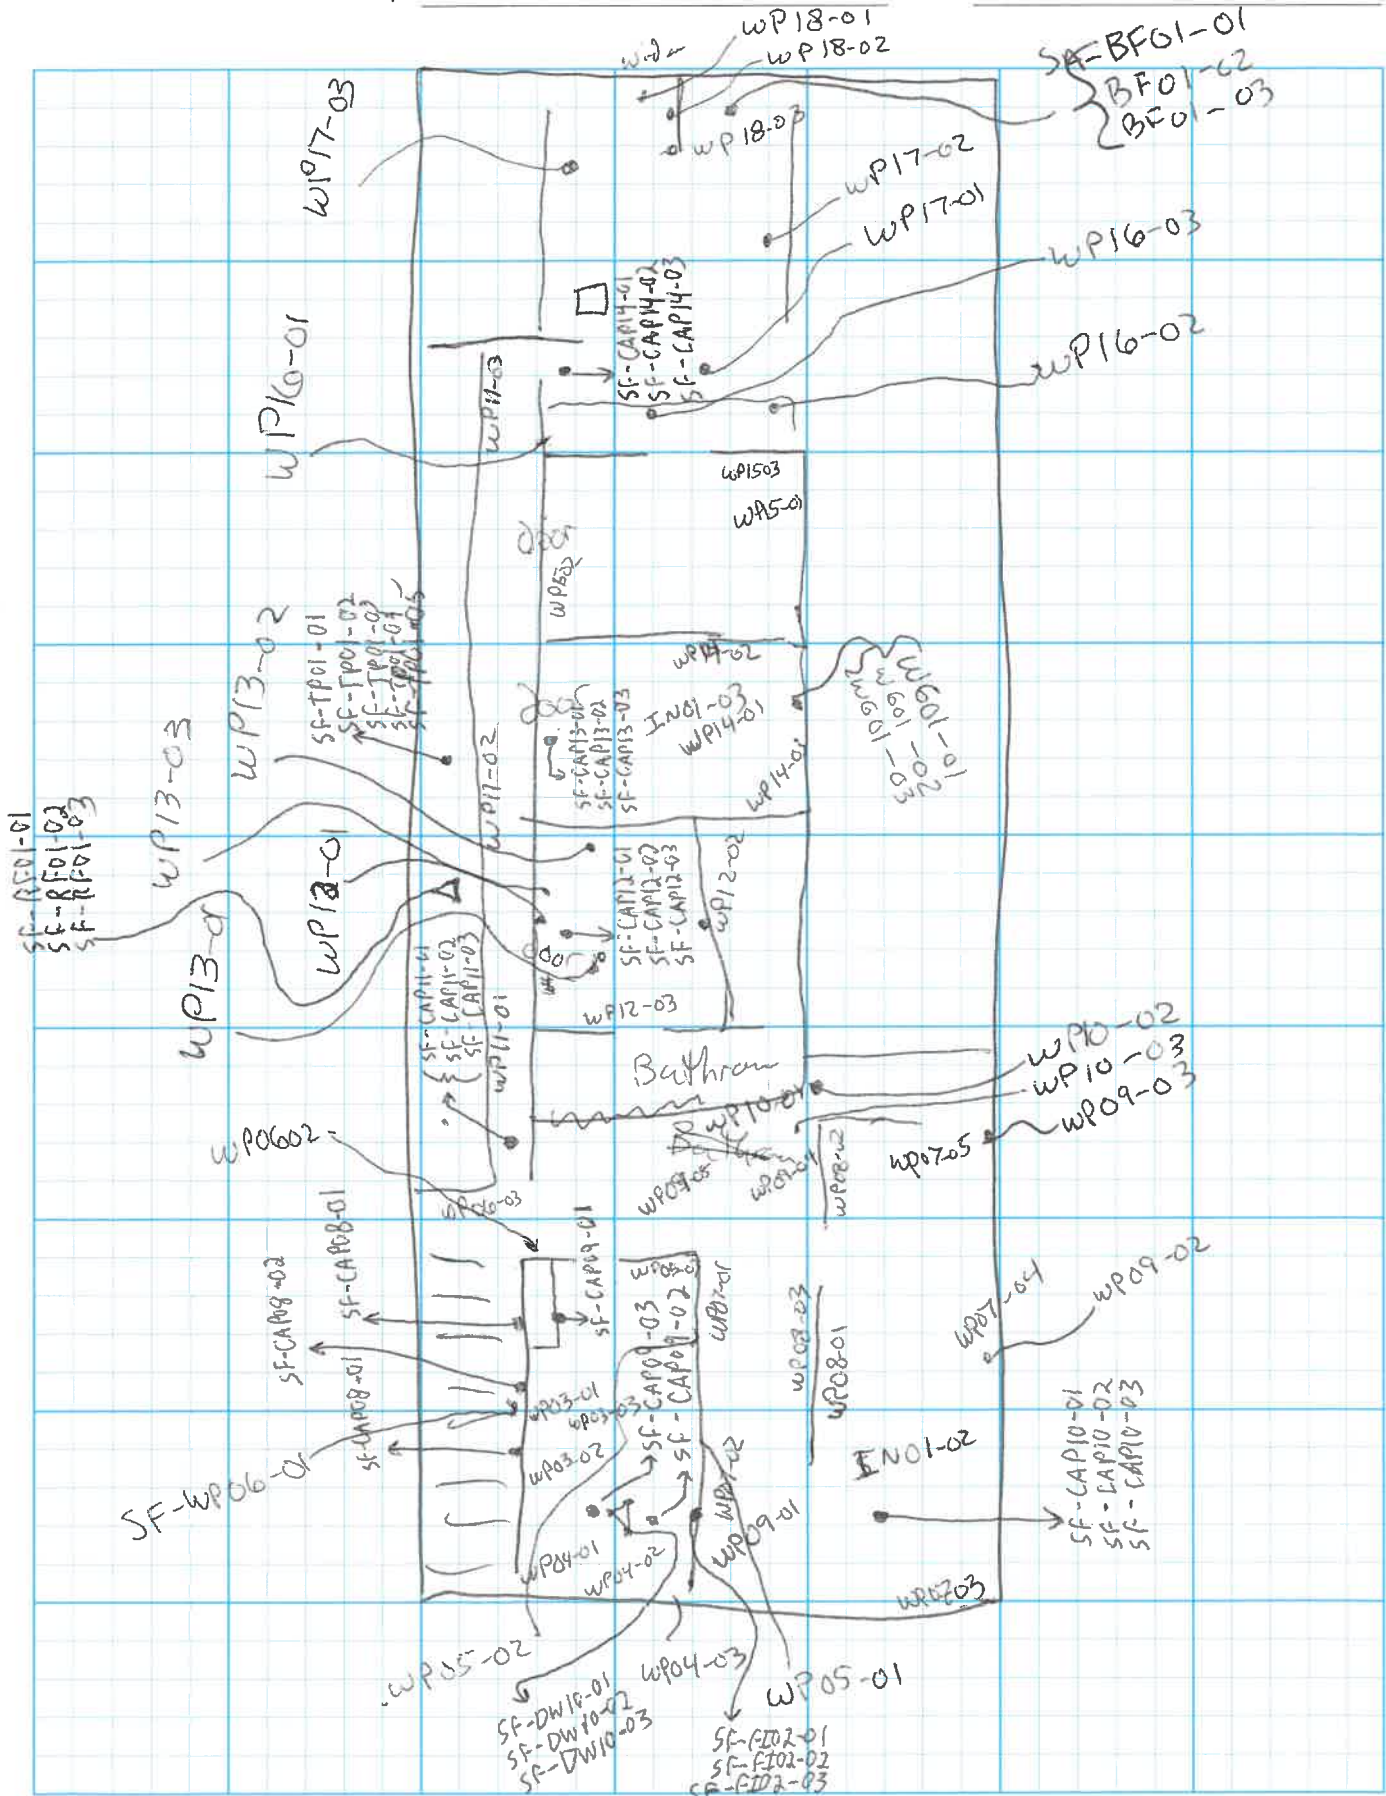 WP18-01
WP18-02
SF-BF01-01
BF01-02
BF01-03
WP17-03
WP18-03
WP17-02
WP17-01
WP16-03
SF-CAP14-01
SF-CAP14-02
SF-CAP14-03
WP16-01
WP11-03
WP16-02
WP1503
WP15-01
door
WP1502
WP13-02
SF-TP01-01
SF-TP01-02
SF-TP01-03
SF-TP01-04
SF-TP01-05
WP14-02
door
SF-CAP13-01
SF-CAP13-02
SF-CAP13-03
IN01-03
WP14-01
WG01-01
WG01-02
WG01-03
WP13-03
WP11-02
WP14-01
SF-RF01-01
SF-RF01-02
SF-RF01-03
WP12-01
SF-CAP12-01
SF-CAP12-02
SF-CAP12-03
WP12-02
WP13-01
door
SF-CAP11-01
SF-CAP11-02
SF-CAP11-03
WP11-01
WP12-03
Bathroom
WP10-02
WP10-03
WP09-03
WP10-01
WP0602
WP07-05
WP08-02
SP06-03
SF-CAP08-01
SF-CAP08-02
SF-CAP09-01
WP07-01
WP08-03
WP08-01
WP07-04
WP09-02
SF-CAP08-01
WP03-01
WP03-03
WP03-02
SF-CAP09-03
SF-CAP09-02
SF-WP06-01
WP07-02
IN01-02
SF-CAP10-01
SF-CAP10-02
SF-CAP10-03
WP04-01
WP04-02
WP09-01
WP0703
WP05-02
WP04-03
WP05-01
SF-DW10-01
SF-DW10-02
SF-DW10-03
SF-FI02-01
SF-FI02-02
SF-FI02-03